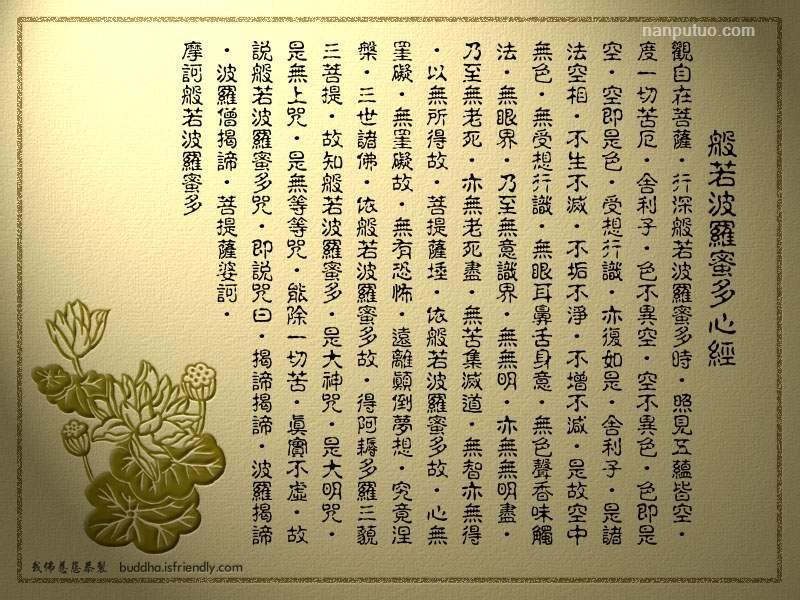 nanputuo.com
般若波羅蜜多心經
觀自在菩薩·行深般若波羅蜜多時·照見五蘊皆空·
度一切苦厄·舍利子·色不異空·空不異色·色即是
空·空即是色·受想行識·亦復如是·舍利子·是諸
法空相·不生不滅·不垢不淨·不增不減·是故空中
無色·無受想行識·無眼耳鼻舌身意·無色聲香味觸
法·無眼界·乃至無意識界·無無明·亦無無明盡·
乃至無老死·亦無老死盡·無苦集滅道·無智亦無得
·以無所得故·菩提薩埵·依般若波羅蜜多故·心無
罣礙·無罣礙故·無有恐怖·遠離顛倒夢想·究竟涅
槃·三世諸佛·依般若波羅蜜多故·得阿耨多羅三藐
三菩提·故知般若波羅蜜多·是大神咒·是大明咒·
是無上咒·是無等等咒·能除一切苦·真實不虛·故
說般若波羅蜜多咒·即說咒曰·揭諦揭諦·波羅揭諦
·波羅僧揭諦·菩提薩婆訶·
摩訶般若波羅蜜多
我佛慈悲恭製 buddha.isfriendly.com